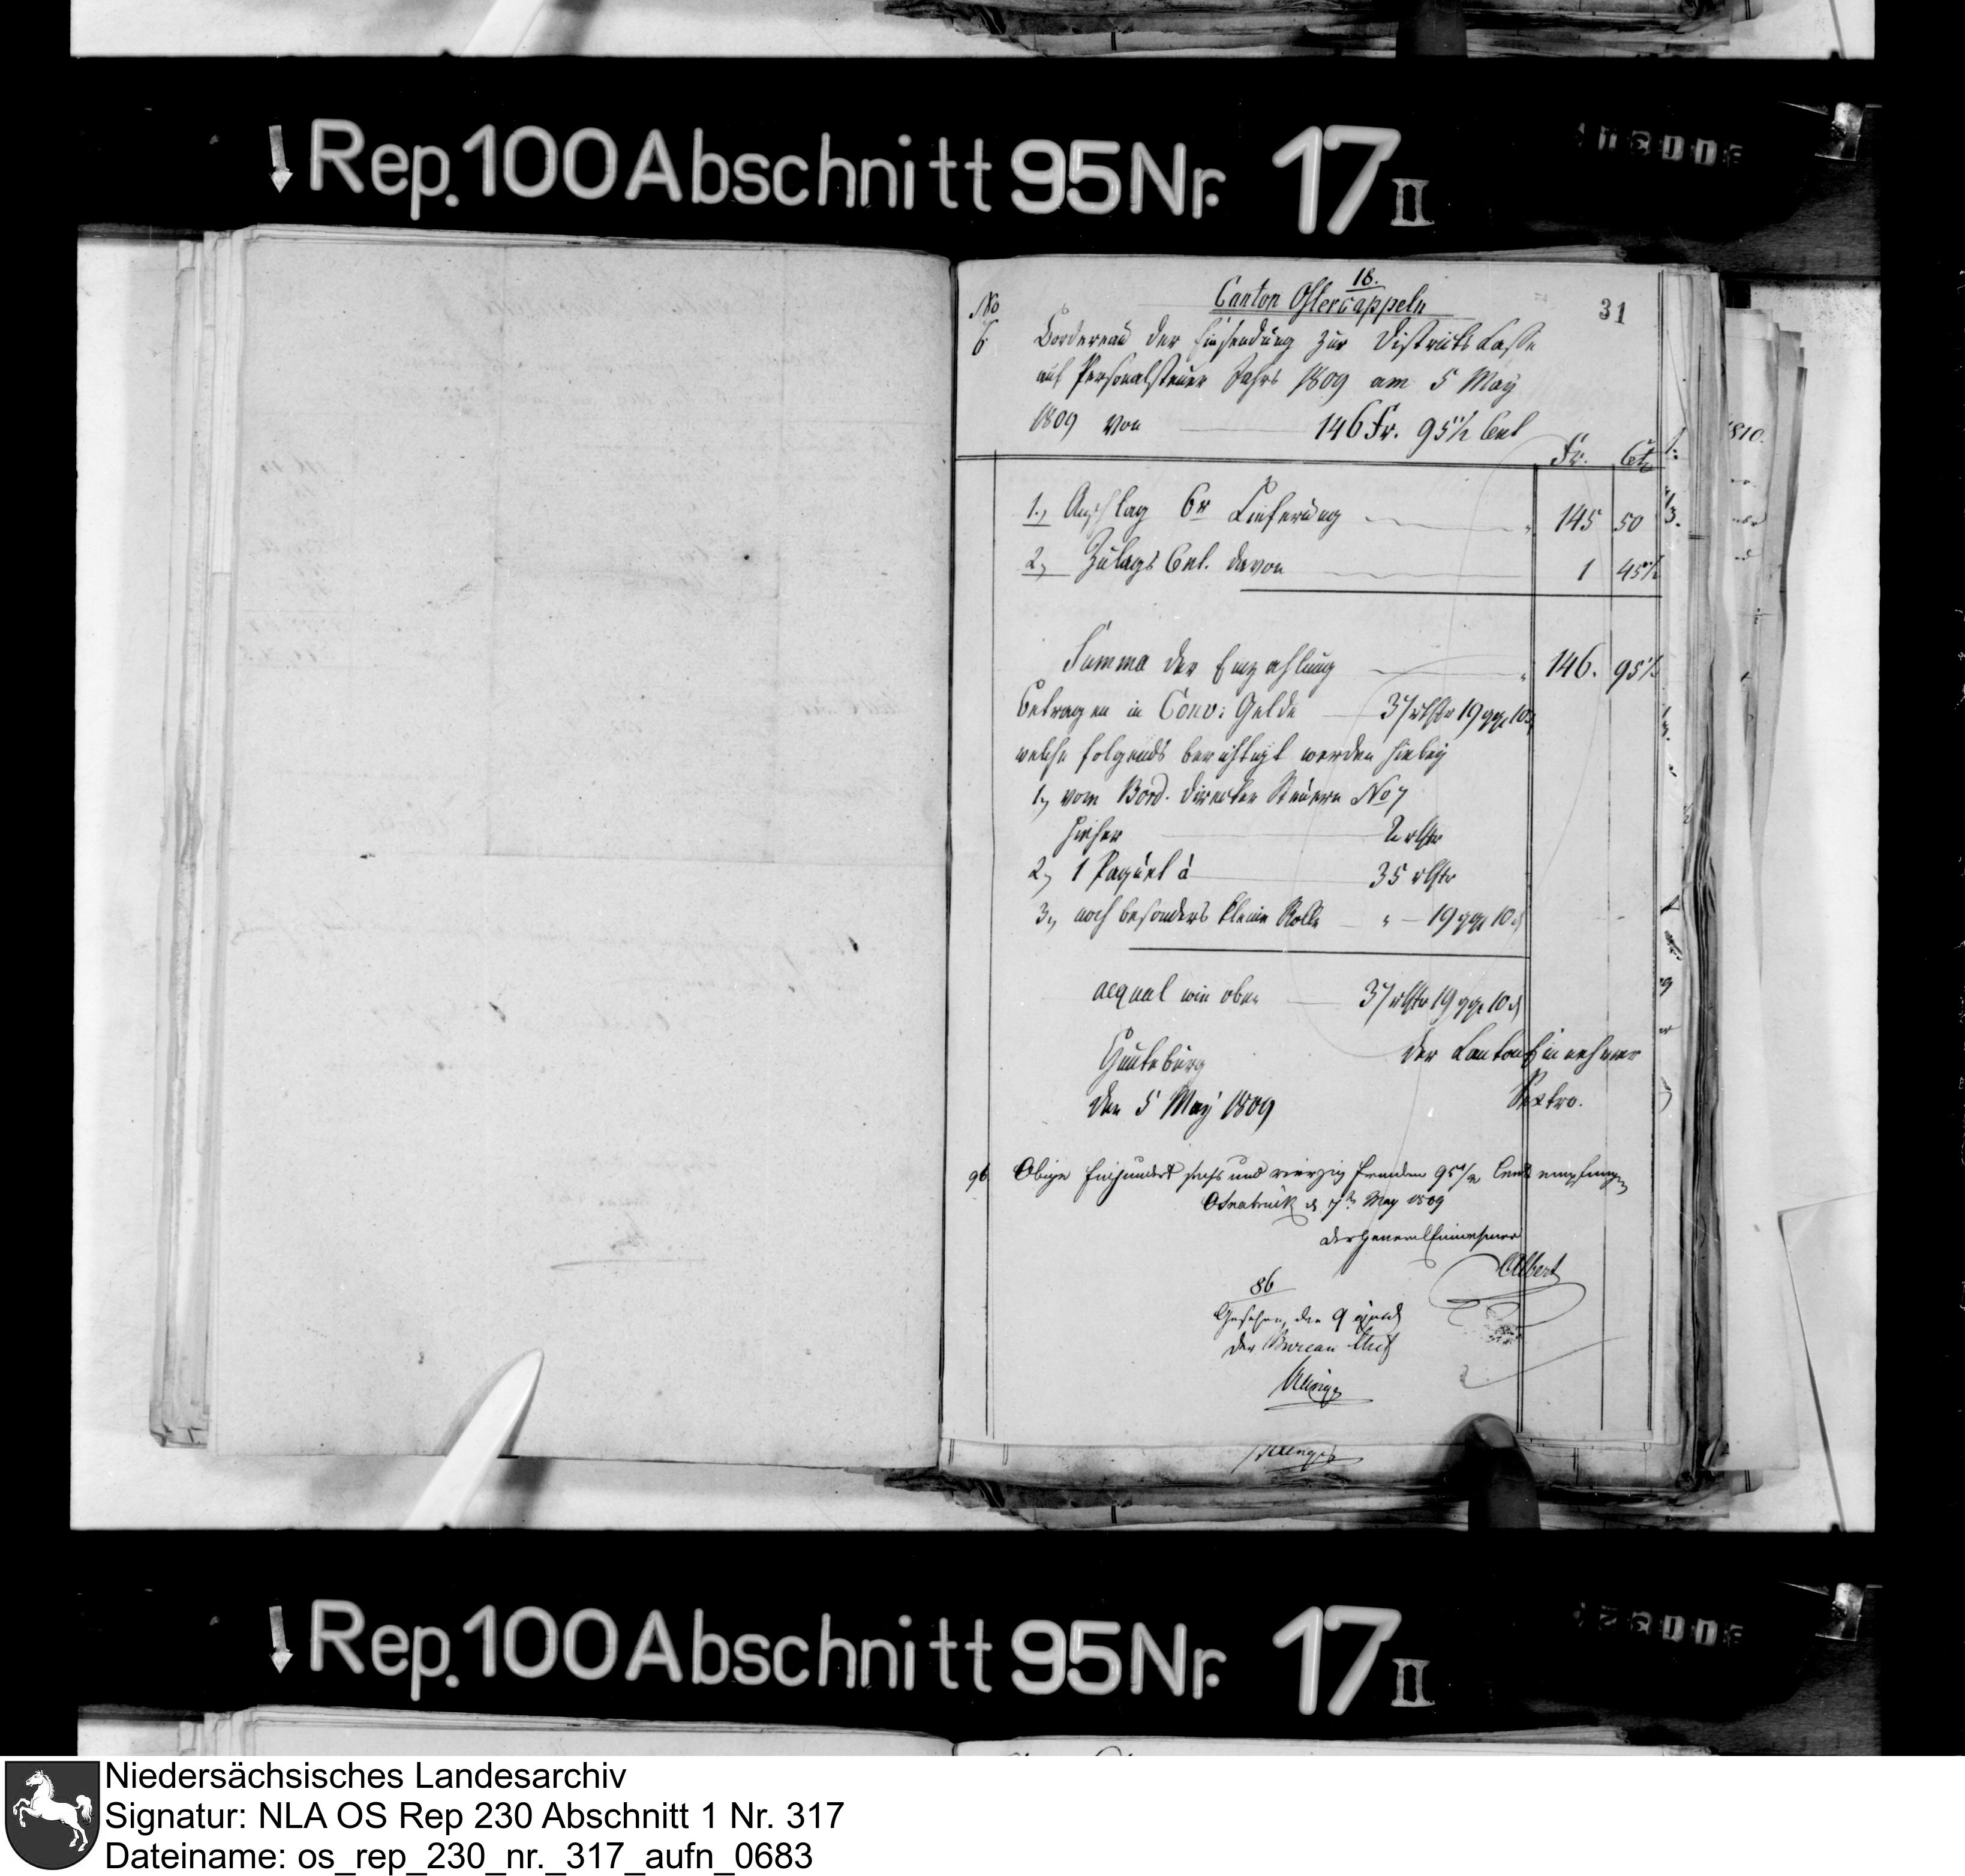 Rep. 100 Abschnitt 95 Nr. 17 II
18.
Canton Ostercappeln
31
No
6
Bordereau der Einsendung zur Districts Casse
auf Personalsteuer Jahrs 1809 am 5 May
1809 von 146 Fr. 95 1/2 Cent
Fr. Ct
1., Anschlag 6r Lieferung 145 50
2, Zulags Cent. davon 1 45 1/2
Summa der Einzahlung 146. 95 1/2
Betragen in Conv: Gelde 37 rthlr 19 ggr 10 d
welche folgends berichtigt werden hiebey
1, vom Bord. directer Steuern No 7
hieher 2 rthlr
2, 1 Paquet à 35 rthlr
3., noch besonders kleine Rolle " — 19 ggr 10 d
aequal wie oben 37 rthlr 19 ggr 10 d
der Canton Einnehmer
den 5 May 1809
Sextro.
96 Obige Einhundert sechs und vierzig Franken 95 1/2 Cent empfangen
Osnabrück d 7ten May 1809
der General Einnehmer
Albert
86
Gesehen, den 9 ejusd
der Bureau Chef
1810.
Rep. 100 Abschnitt 95 Nr. 17 II
Niedersächsisches Landesarchiv
Signatur: NLA OS Rep 230 Abschnitt 1 Nr. 317
Dateiname: os_rep_230_nr._317_aufn_0683